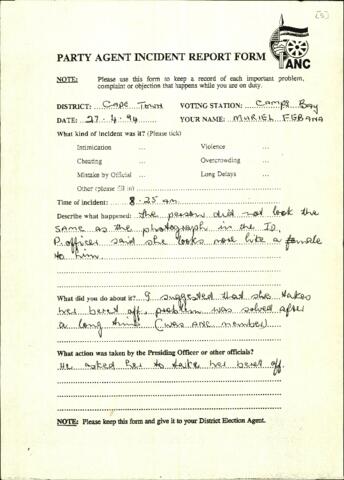 [5]
ANC
PARTY AGENT INCIDENT REPORT FORM
NOTE: Please use this form to keep a record of each important problem,
complaint or objection that happens while you are on duty.
DISTRICT: Cape Town VOTING STATION: Camps Bay
DATE: 27.4.94 YOUR NAME: MURIEL FEBANA
What kind of incident was it? (Please tick)
Intimidation ... Violence ...
Cheating ... Overcrowding ...
Mistake by Official ... Long Delays ...
Other (please fill in)
Time of incident: 8.25 am
Describe what happened: The person did not look the
SAME as the photograph in the ID.
P.officer said she looks more like a female
to him.
What did you do about it? I suggested that she takes
her beret off, problem was solved after
a long time (was ANC member)
What action was taken by the Presiding Officer or other officials?
He asked her to take her beret off.
NOTE: Please keep this form and give it to your District Election Agent.